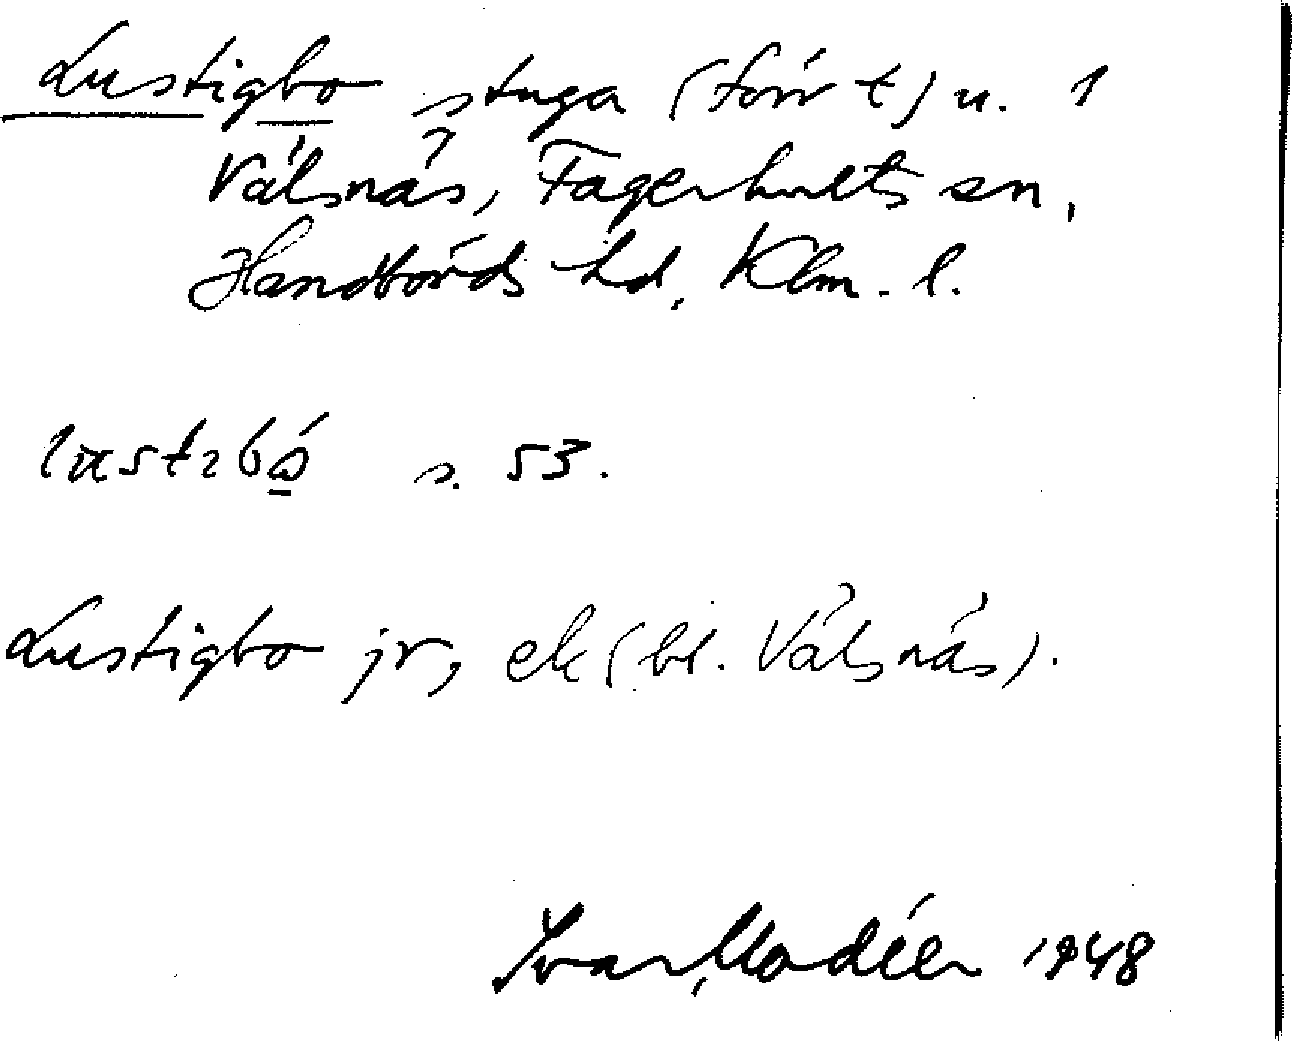 Lustigbo stuga (förr t) u. 1
Välsnäs, Fagerhults sn,
Handbörds hd, Klm. l.
s. 53.
Lustigbo jr, ek (bl. Välsnäs).
Ivar Modéer 1948